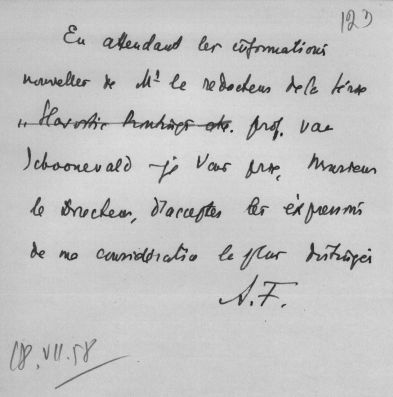 123
En attendant les informations
nouvelles de Mr le redacteur de la série
„Slavistic Printings etc. prof. van
Schooneveld – je Vous prie, Monsieur
le Directeur, d'accepter les expressions
de ma considération la plus distinguée
A.F.
18.VII.58